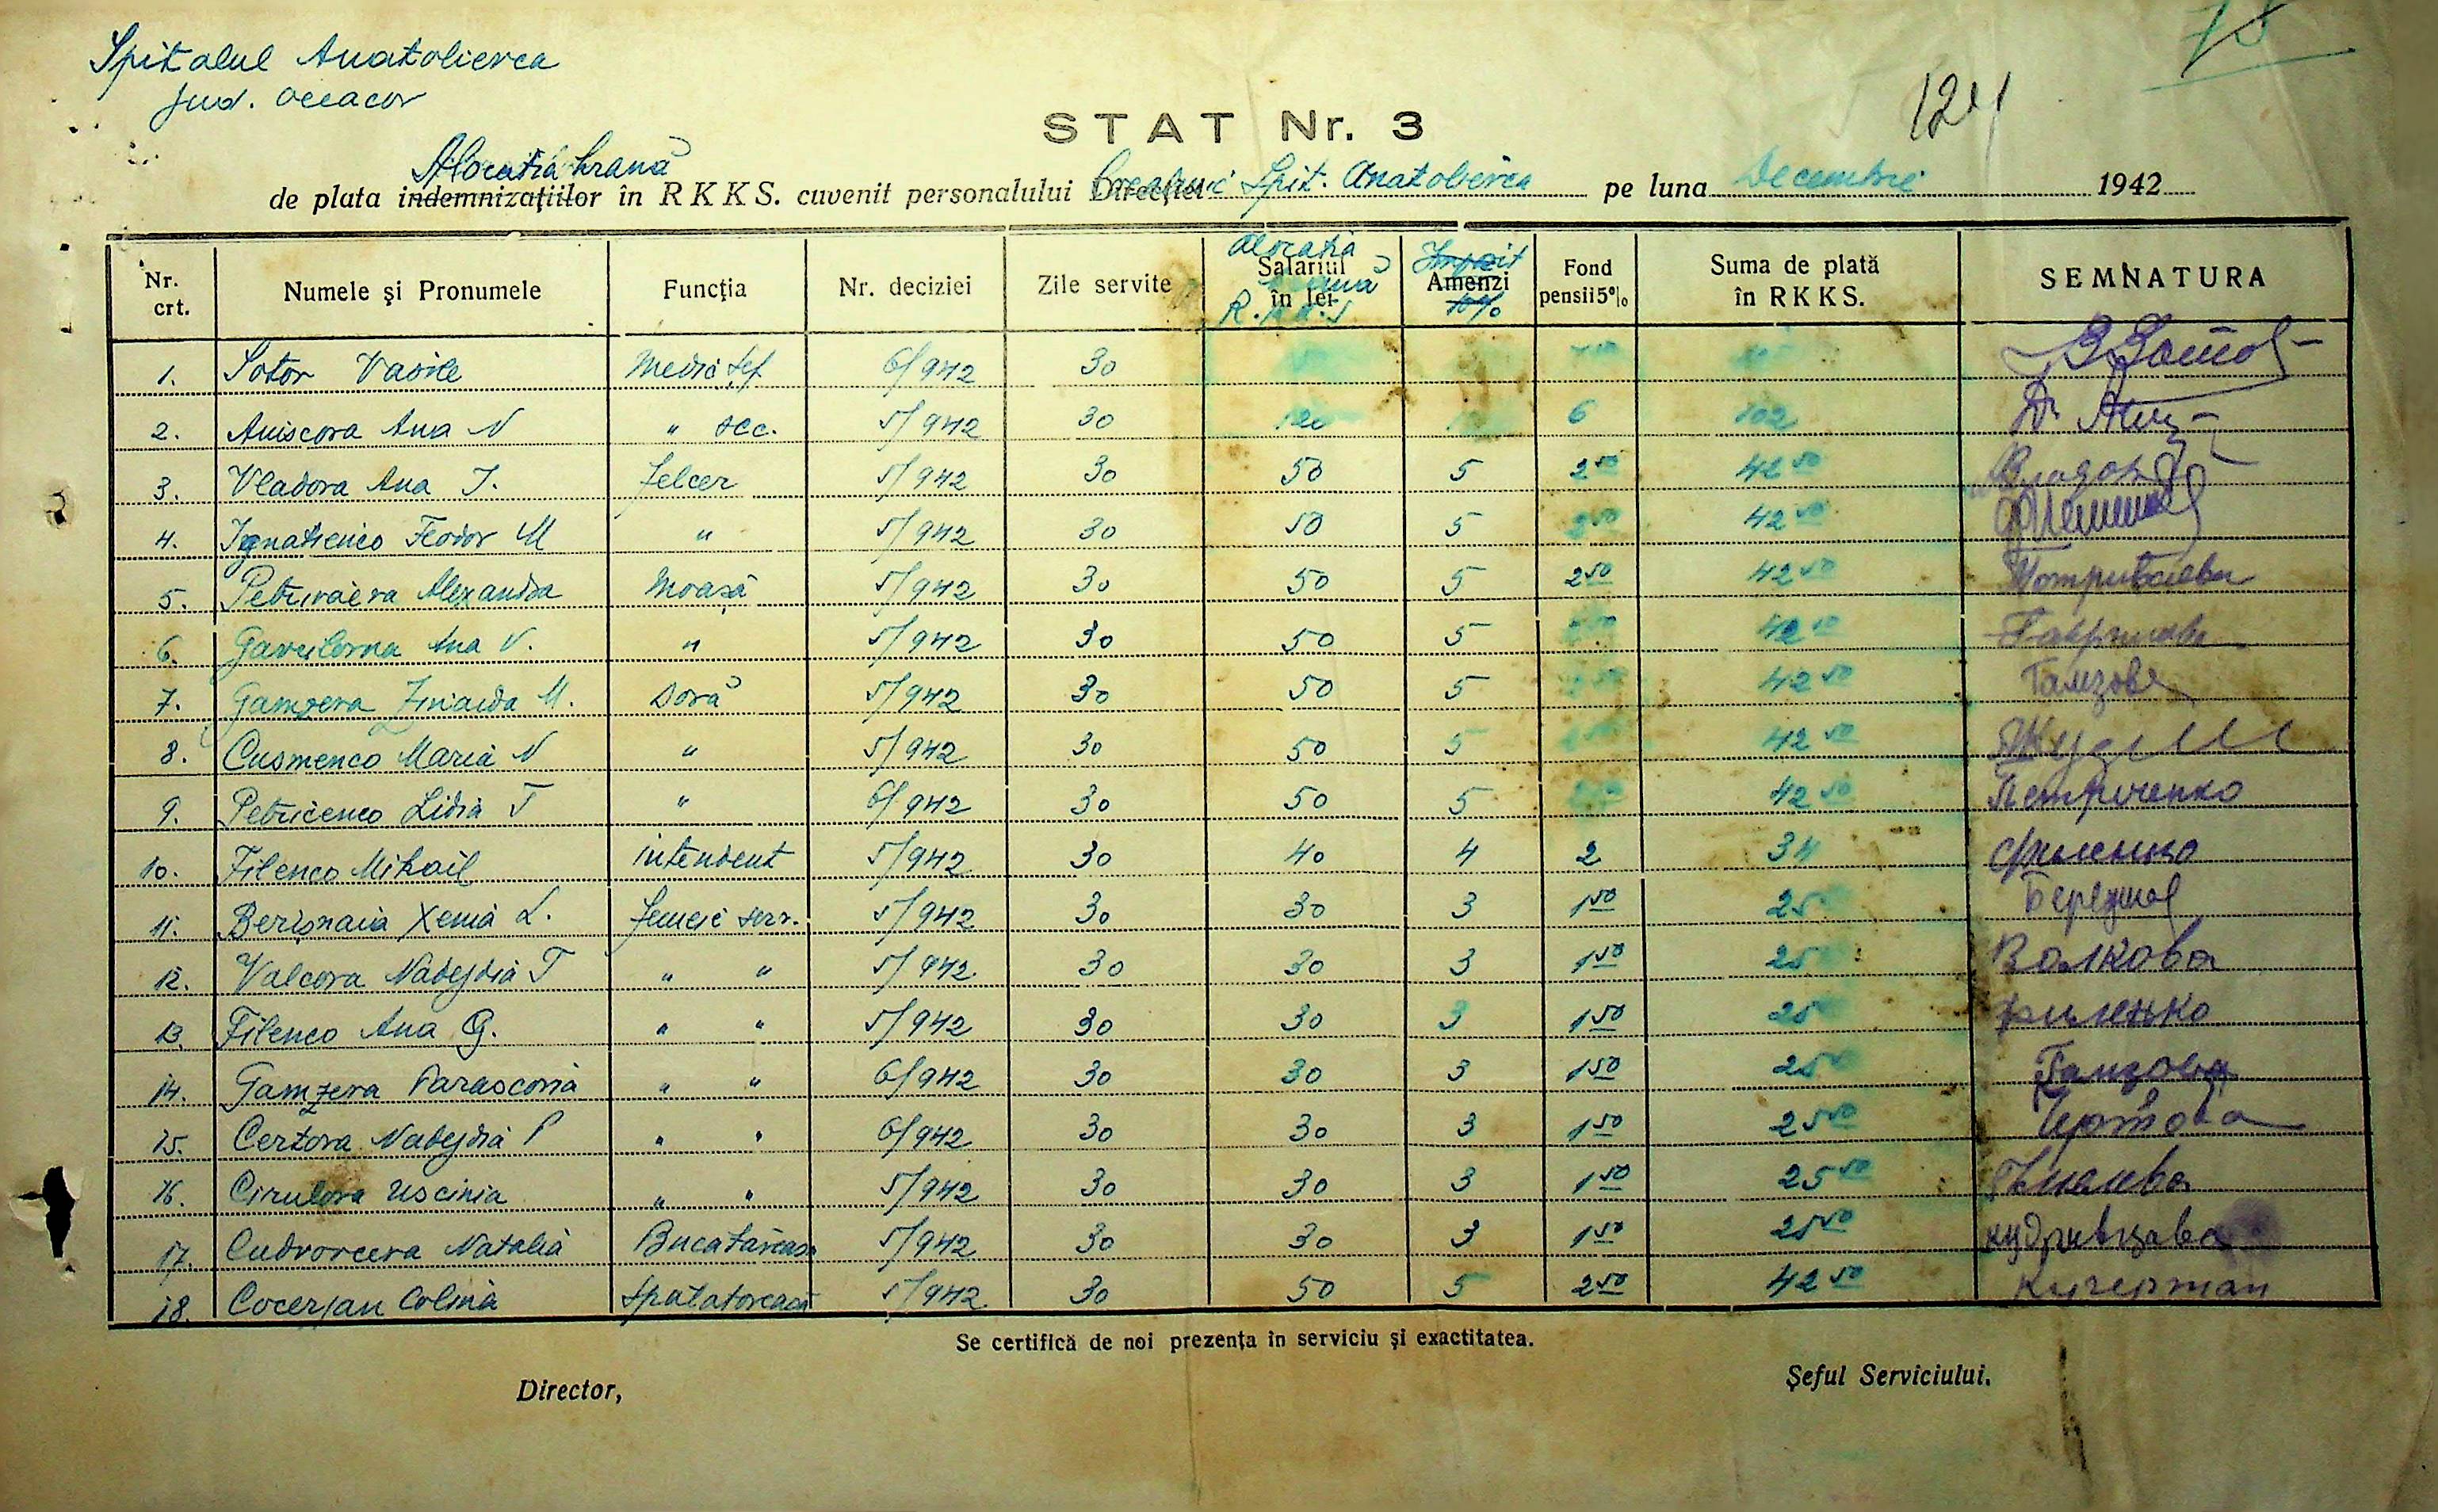 78
Spitalul Anatolievca
Jud. Oceacov
124
STAT Nr. 3
Alocatia hrană
de plata indemnizațiilor în RKKS. cuvenit personalului Direcției Spit. Anatolievca pe luna Decembrie 1942
Nr. crt. Numele și Pronumele Funcția Nr. deciziei Zile servite Alocatia Salariul în lei R.K.K.S Impozit Amenzi 10% Fond pensii 5% Suma de plată în RKKS. SEMNATURA
1. Sotov Vasile Medic șef 6/942 30
2. Aniscova Ana N " sec. 5/942 30 120 6 102 Dr.
3. Vladova Ana I. felcer 5/942 30 50 5 2 50 42 50
4. Ignatienco Feodor M " 5/942 30 50 5 2 50 42 50
5. Petrivaeva Alexandra Moașă 5/942 30 50 5 2 50 42 50
6. Gavrilovna Ana V. " 5/942 30 50 5 42 50
7. Gamzeva Zinaida M. Soră 5/942 30 50 5 2 50 42 50 Гамзова
8. Cusmenco Maria N " 5/942 30 50 5 42 50
9. Petricenco Lidia T " 6/942 30 50 5 42 50 Петриченко
10. Filenco Mihail intendent 5/942 30 40 4 2 34 Филенко
11. Berișnaia Xenia L. femeie serv. 5/942 30 30 3 1 50 25
12. Valcova Nadejdia T " " 5/942 30 30 3 1 50 25 Волкова
13. Filenco Ana G. " " 5/942 30 30 3 1 50 25 Филенко
14. Gamzeva Parascovia " " 6/942 30 30 3 1 50 25 Гамзова
15. Certova Nadejdia P " " 6/942 30 30 3 1 50 25 50 Чертова
16. Cirulova Uscinia " " 5/942 30 30 3 1 50 25 50
17. Cudrovceva Natalia Bucatăreasă 5/942 30 30 3 1 50 25 50 кудривцава
18. Cocerjan Colina Spălatoreasă 5/942 30 50 5 2 50 42 50
Se certifică de noi prezența în serviciu și exactitatea.
Director, Șeful Serviciului.